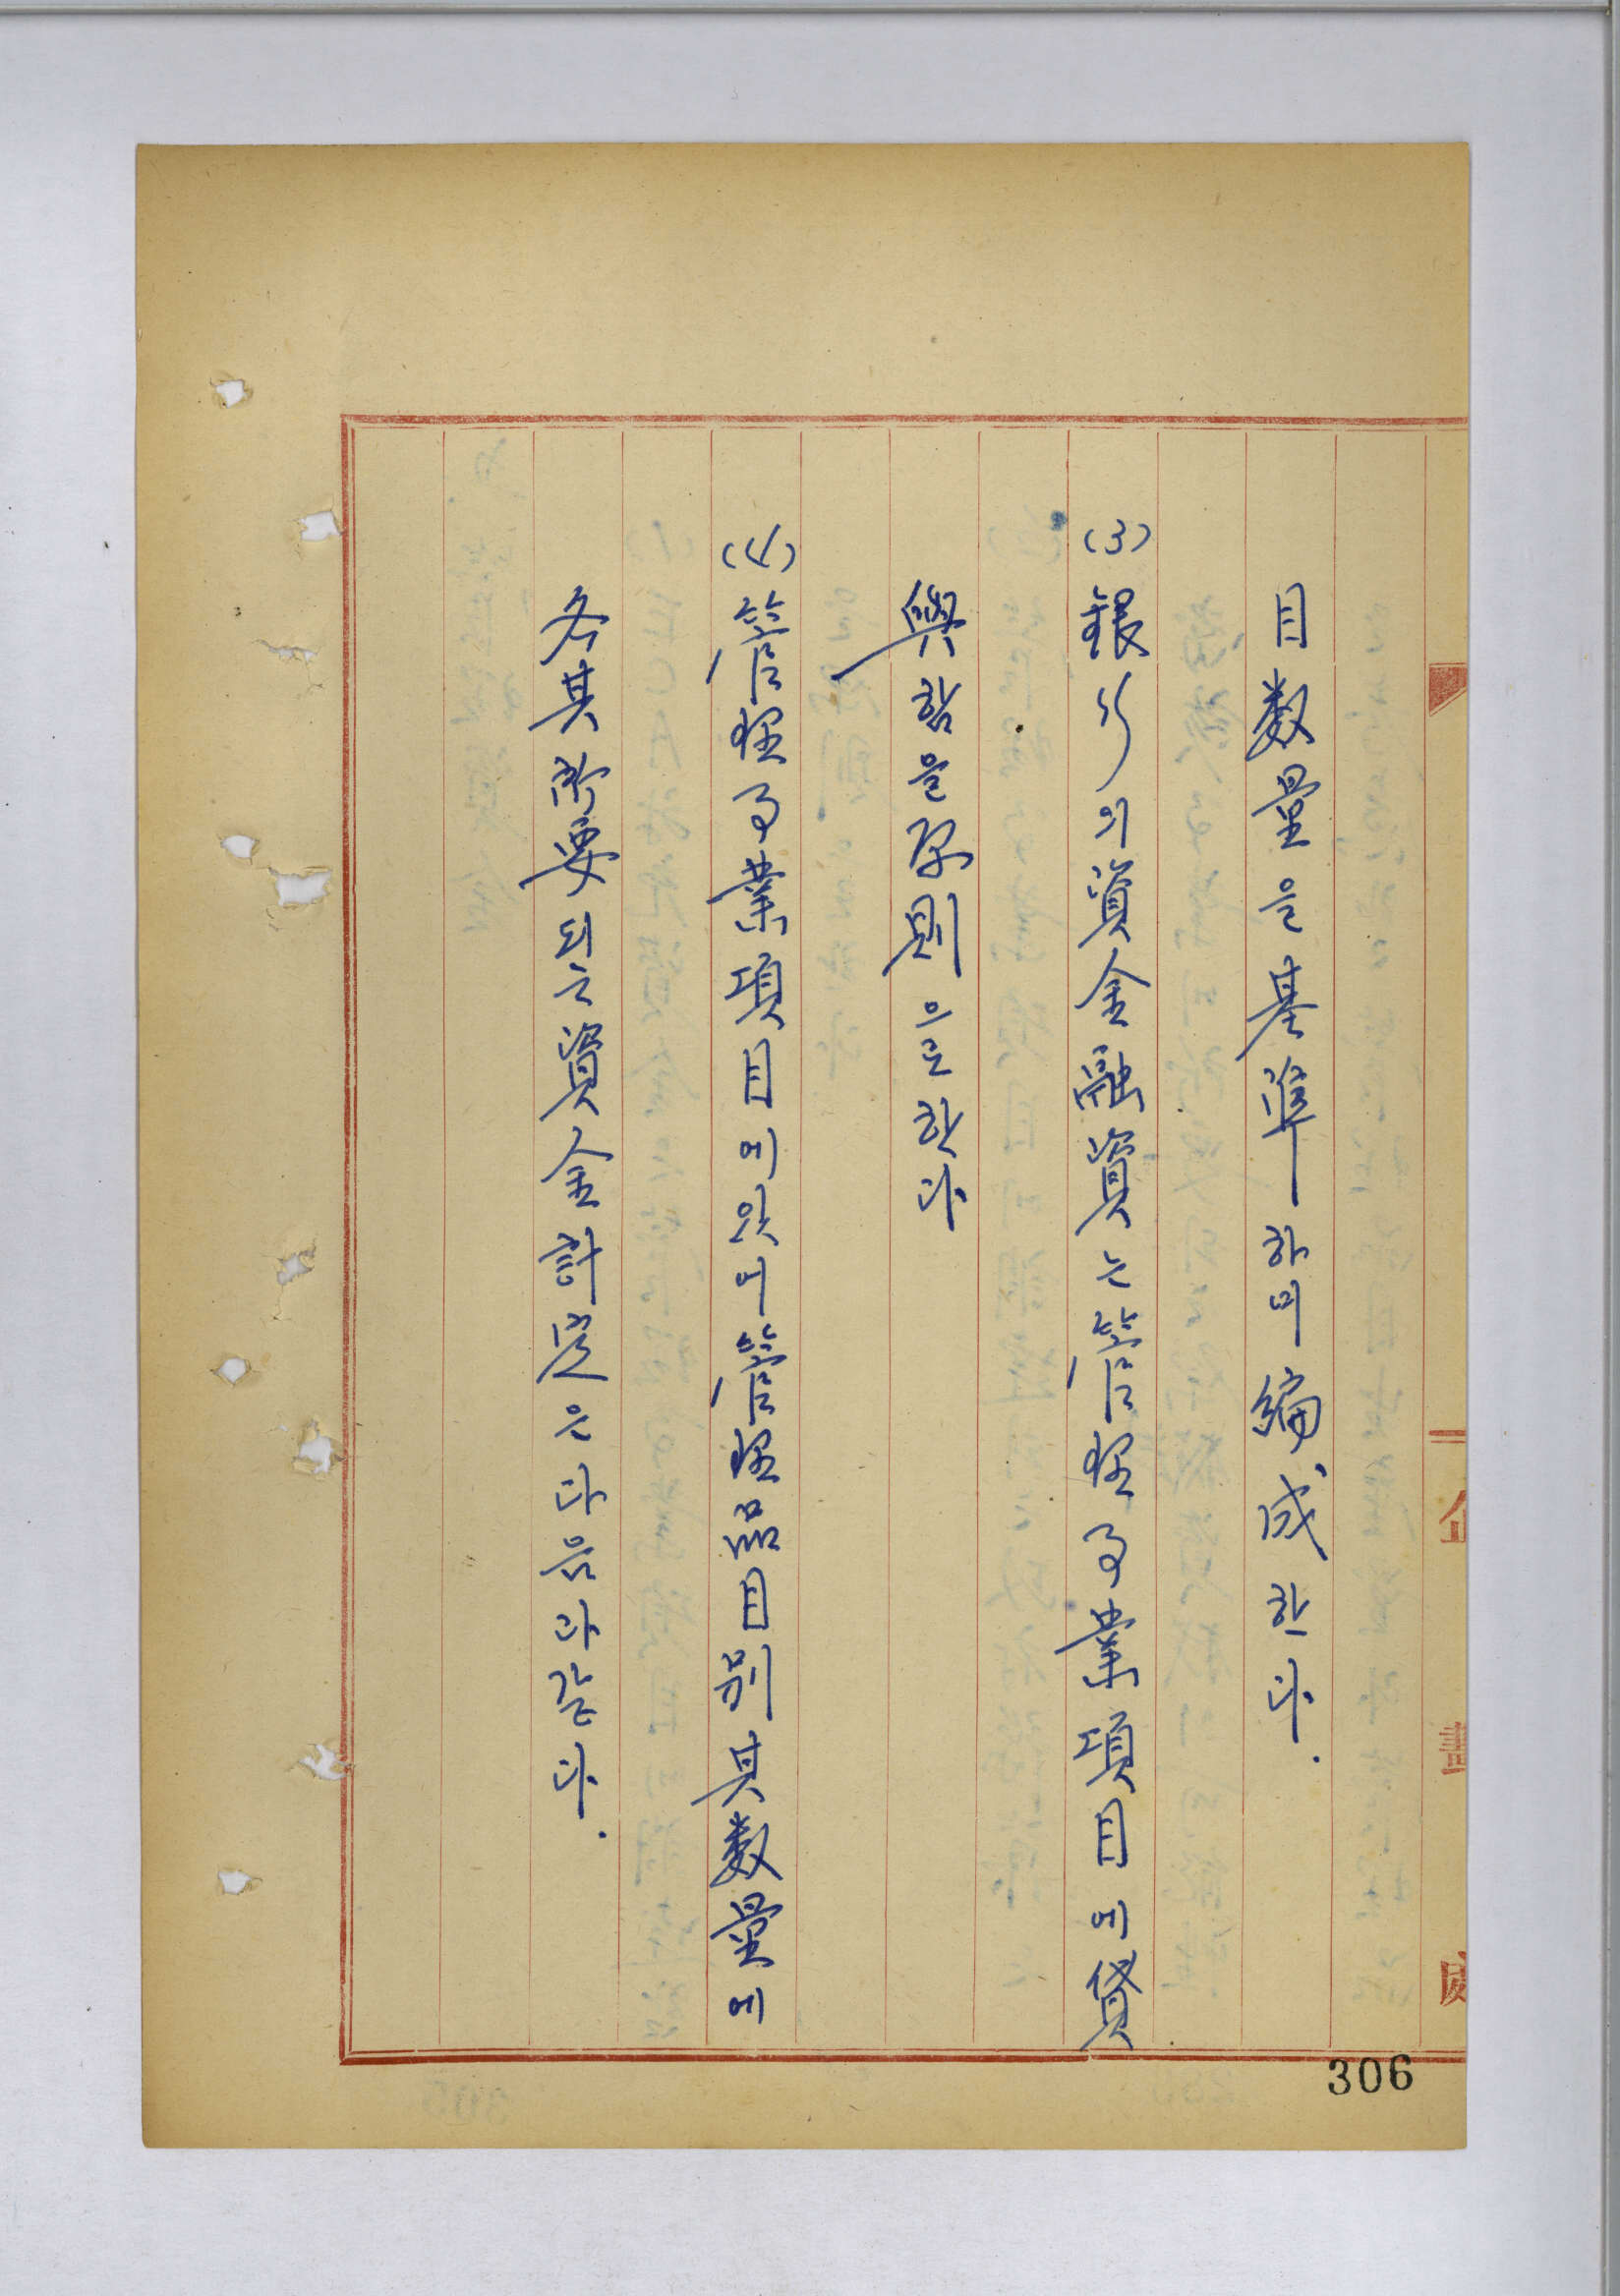 目数量을基準하며編成한다.
(3) 銀行의資金融資는管理事業項目의貸
與함을原則으로한다
(4) 管理事業項目에있어의管理品目別其数量에
各其必要되는資金計画은다음과같다.
企画
306